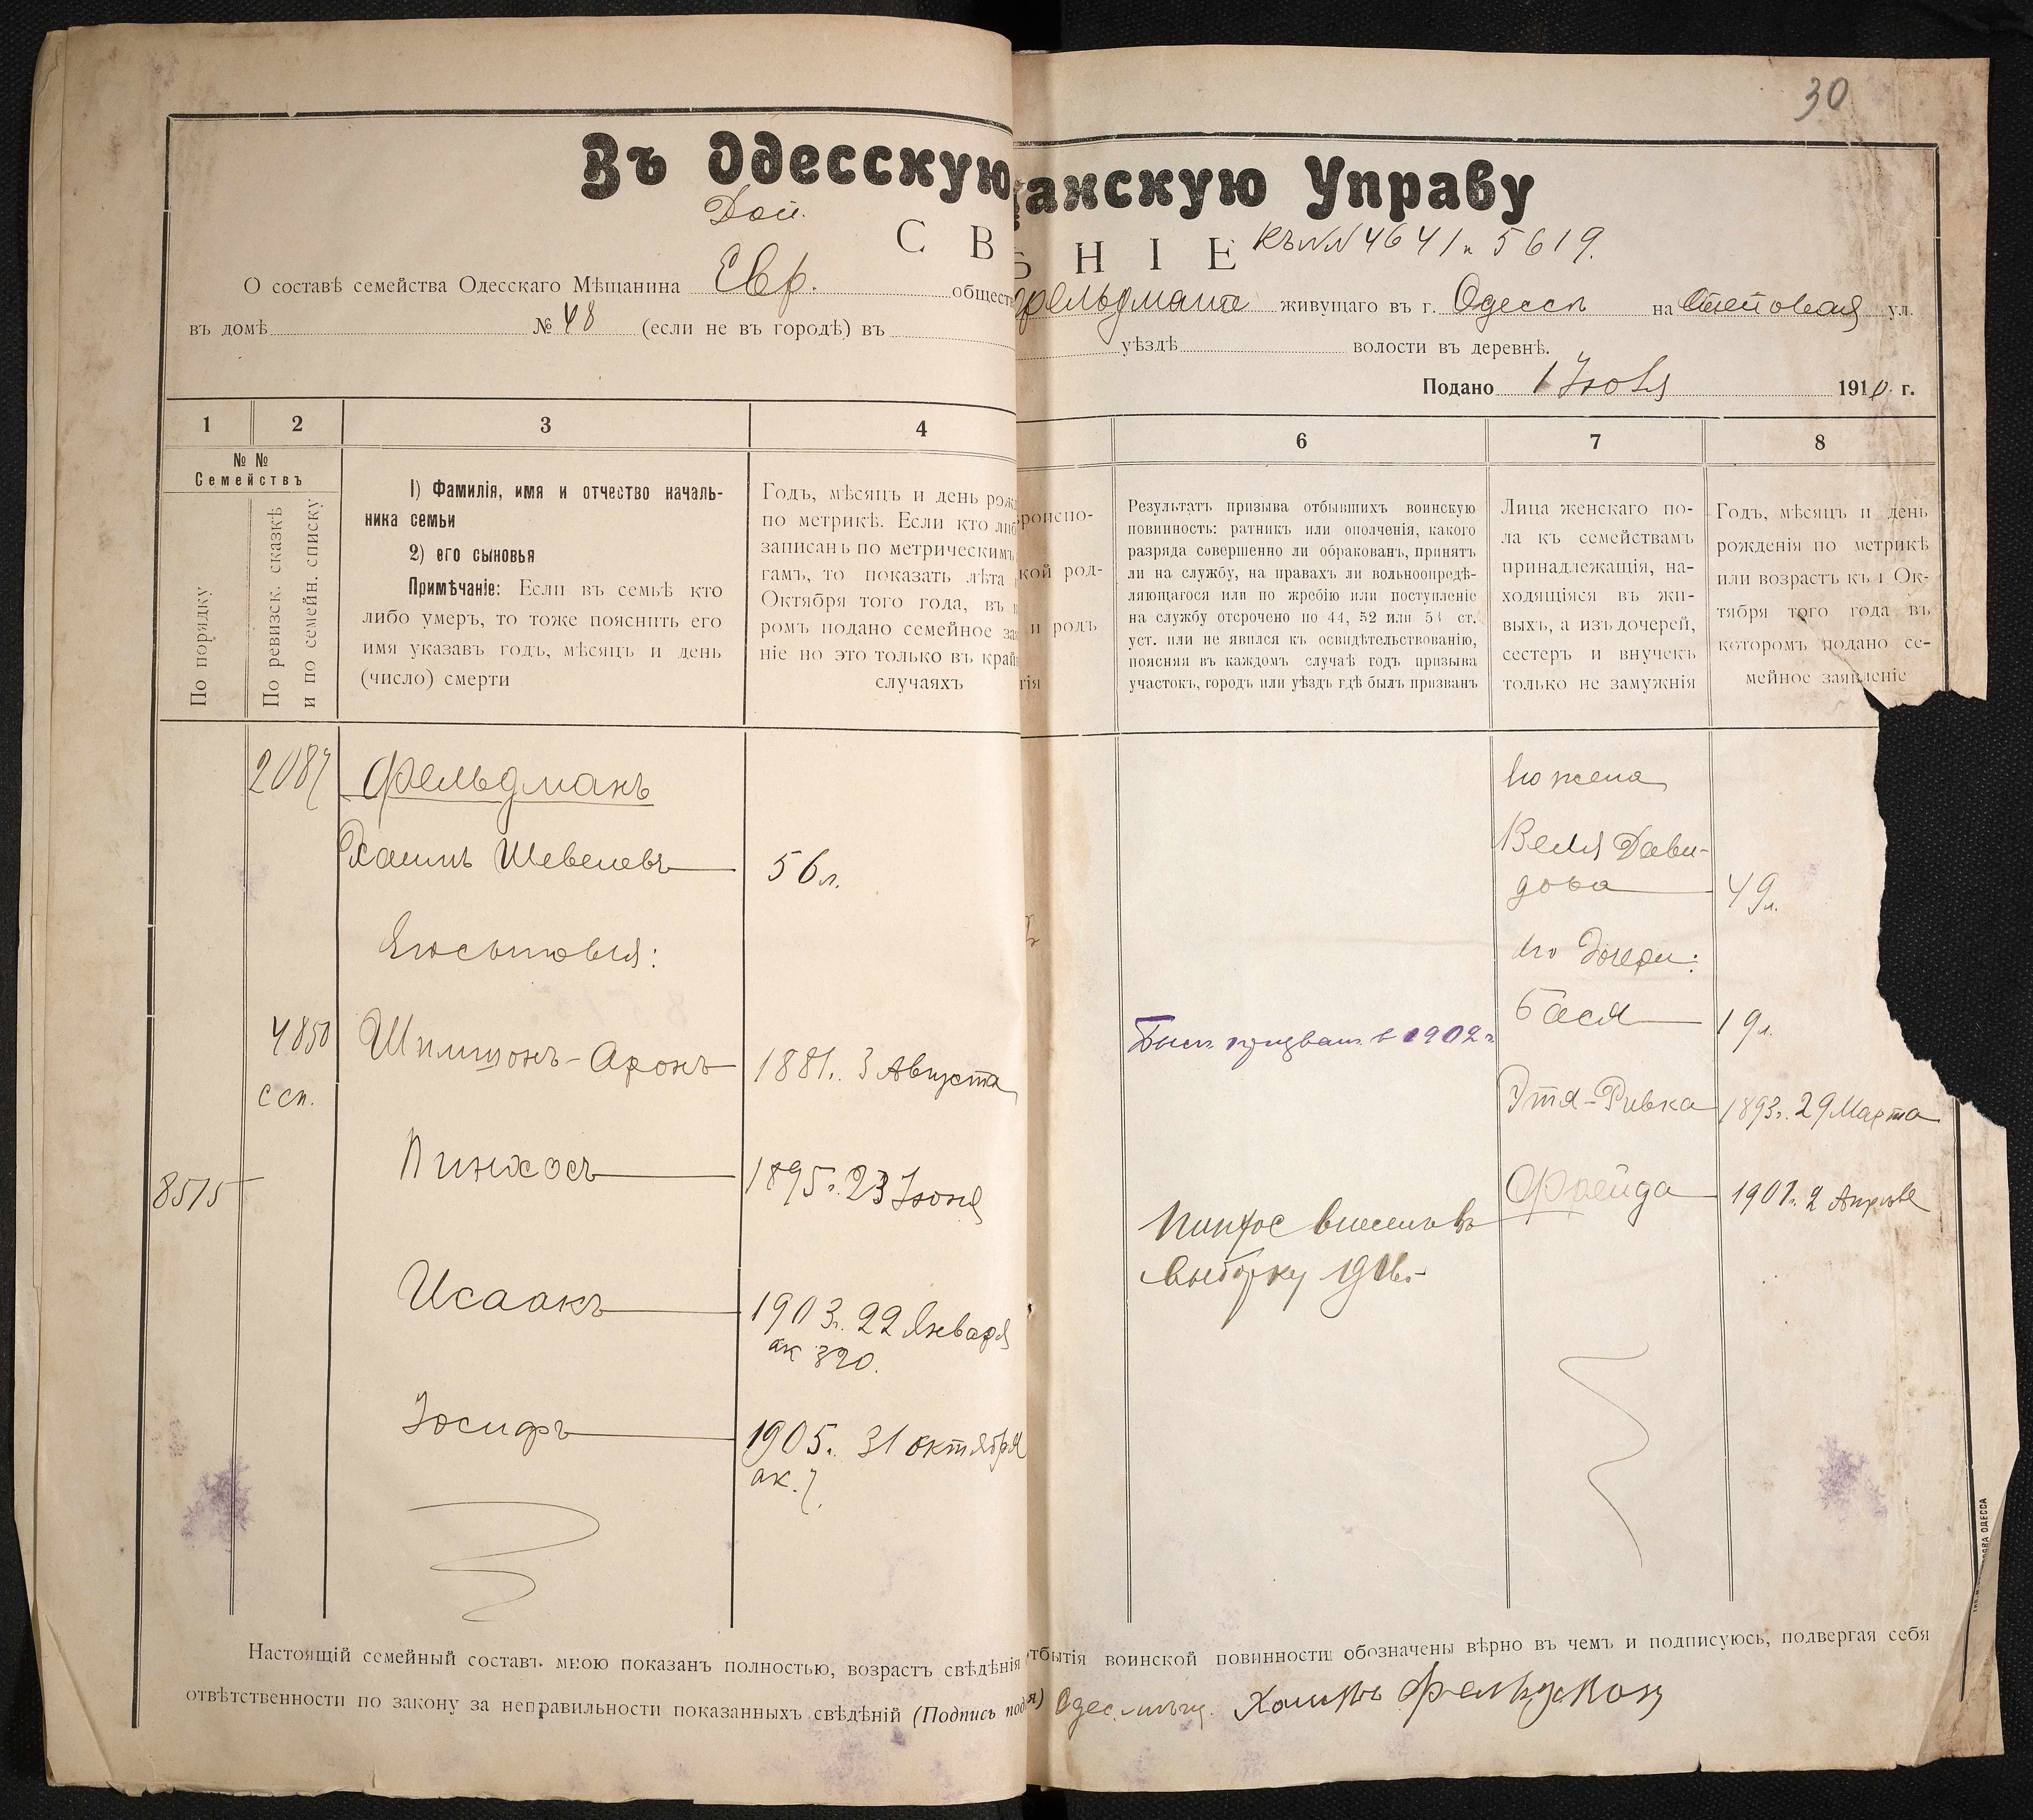 30
Въ Одесскую
анскую Управу
Доп.
С В
Ѣ Н І Е Къ №№ 4641 и 5619.
О составѣ семейства Одесскаго Мѣщанина Евр. обществ
Фельдмана живущаго въ г. Одессѣ на Степовая ул.
въ домѣ № 48 (если не въ городѣ) въ
уѣздѣ волости въ деревнѣ.
Подано 1 Іюля 1910 г.
1 2 3 4
6 7 8
№ №
Семействъ
По порядку
По ревизск. сказкѣ
и по семейн. списку
1) Фамилія, имя и отчество началь-
ника семьи
2) его сыновья
Примѣчаніе: Если въ семьѣ кто
либо умеръ, то тоже пояснить его
имя указавъ годъ, мѣсяцъ и день
(число) смерти
Годъ, мѣсяцъ и день рож
по метрикѣ. Если кто либ
записанъ по метрическимъ
гамъ, то показать лѣта
Октября того года, въ
ромъ подано семейное за
ніе но это только въ край
случаяхъ
роиспо-
кой род-
и родъ
гія
Результатъ призыва отбывшихъ воинскую
повинность: ратникъ или ополченія, какого
разряда совершенно ли обракованъ, принятъ
ли на службу, на правахъ ли вольноопредѣ-
ляющагося или по жребію или поступленіе
на службу отсрочено по 44, 52 или 53 ст.
уст. или не явился къ освидѣтельствованію,
поясняя въ каждомъ случаѣ годъ призыва
участокъ, городъ или уѣздъ гдѣ былъ призванъ
Лица женскаго по-
ла къ семействамъ
принадлежащія, на-
ходящіяся въ жи-
выхъ, а изъ дочерей,
сестеръ и внучекъ
только не замужнія
Годъ, мѣсяцъ и день
рожденія по метрикѣ
или возрастъ къ 1 Ок-
тября того года въ
которомъ подано се-
мейное заявленіе
2087 Фельдманъ
Хаимъ Шевелевъ 56 л.
Его сыновья:
4850 Шимшонъ-Аронъ 1881 г. 3 Августа
ссп.
8515 Пинхосъ 1895 г. 23 Іюня
Исаакъ 1903 г. 22 Января
ак 320.
Іосифъ 1905 г. 31 октября
ак. 7.
Его жена
Веля Дави-
дова 49 л.
Его дочери:
Былъ призванъ в 1902 г
Бася 19 л.
Этя-Ривка 1893 г. 29 Марта
Фрейда 1901 г. 2 Апрѣля
Пинхос внесенъ въ
выборку 1916 г.
Настоящій семейный составъ мною показанъ полностью, возрастъ свѣдѣнія
тбытія воинской повинности обозначены вѣрно въ чемъ и подписуюсь, подвергая себя
отвѣтственности по закону за неправильности показанныхъ свѣдѣній (Подпись под
я) Одес. мѣщ. Хаимъ Фельдманъ
ОВА ОДЕССА